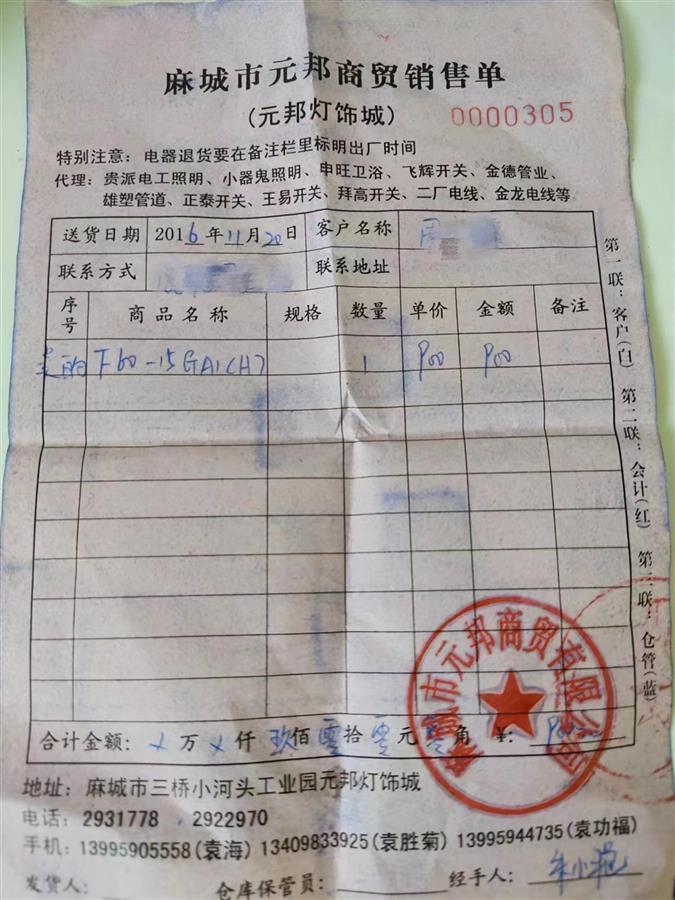 麻城市元邦商贸销售单
(元邦灯饰城)
0000305
特别注意：电器退货要在备注栏里标明出厂时间
代理：贵派电工照明、小器鬼照明、申旺卫浴、飞辉开关、金德管业、
雄塑管道、正泰开关、王易开关、拜高开关、二厂电线、金龙电线等
送货日期 2016年11月20日 客户名称
联系方式 联系地址
序号 商品名称 规格 数量 单价 金额 备注
美的 F60-15GA1(H) 1 900 900
合计金额：×万×仟玖佰零拾零元零角 ¥：900
地址：麻城市三桥小河头工业园元邦灯饰城
电话：2931778，2922970
手机：13995905558(袁海) 13409833925(袁胜菊) 13995944735(袁功福)
发货人： 仓库保管员： 经手人：
第一联：客户(白) 第二联：会计(红) 第三联：仓管(蓝)
麻城市元邦商贸有限公司